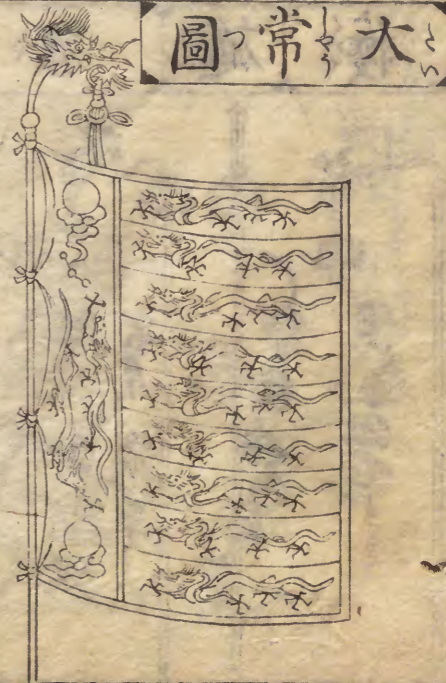 大常圖
たい しやう つ